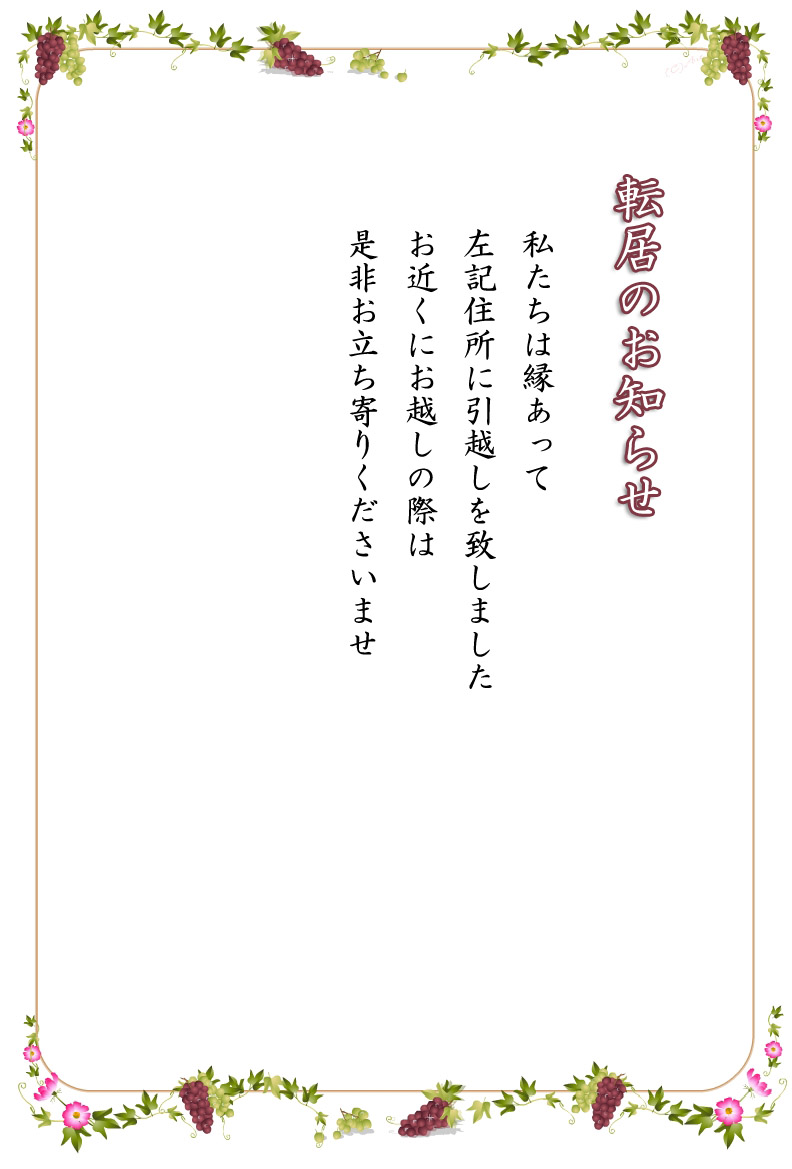 転居のお知らせ
私たちは縁あって
左記住所に引越しを致しました
お近くにお越しの際は
是非お立ち寄りくださいませ